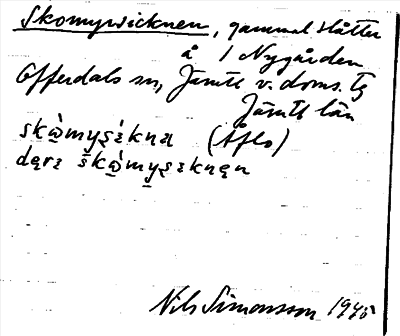 Skomyrsicknen, gammal slåtter
å / Nygården
Offerdals sn, Jämtl v. doms. tg
Jämtl län
skὼ̣mysèknə (Åflo)
dęrɛ skὼ̣mysɛknęn
Nils Simonsson 1945